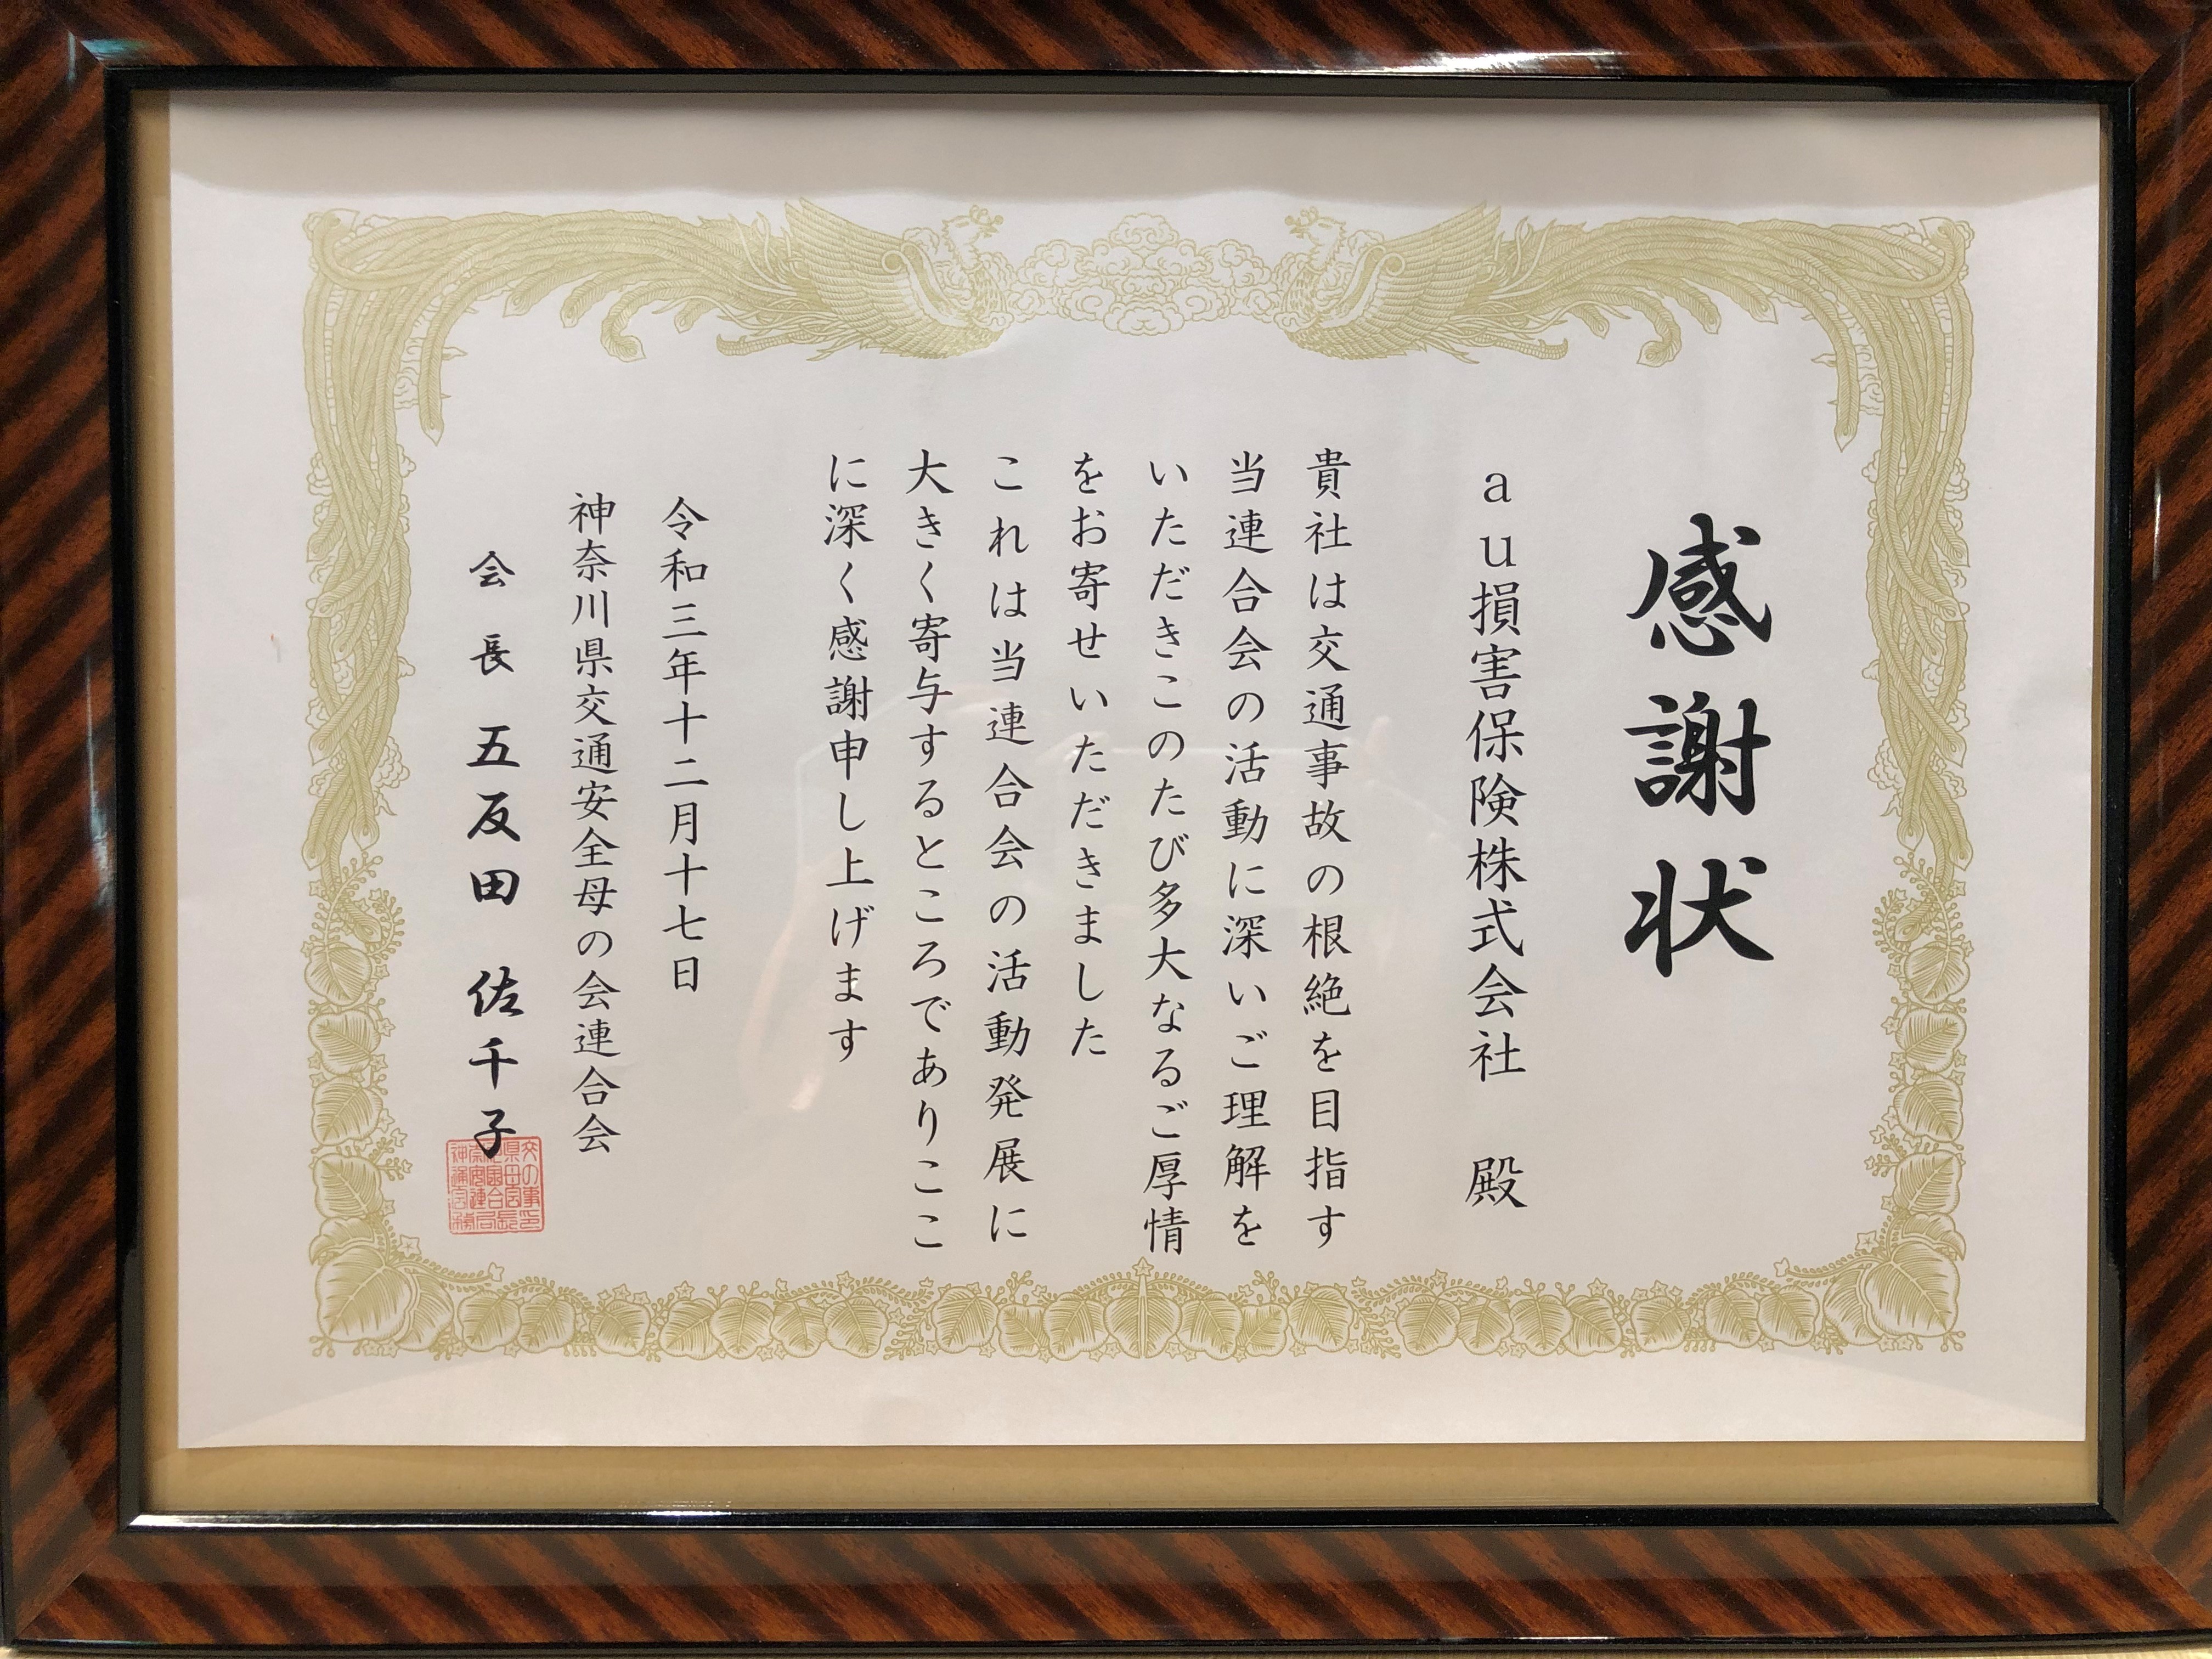 感謝状
au損害保険株式会社 殿
貴社は交通事故の根絶を目指す
当連合会の活動に深いご理解を
いただきこのたび多大なるご厚情
をお寄せいただきました
これは当連合会の活動発展に
大きく寄与するところでありここ
に深く感謝申し上げます
令和三年十二月十七日
神奈川県交通安全母の会連合会
会長 五反田 佐千子